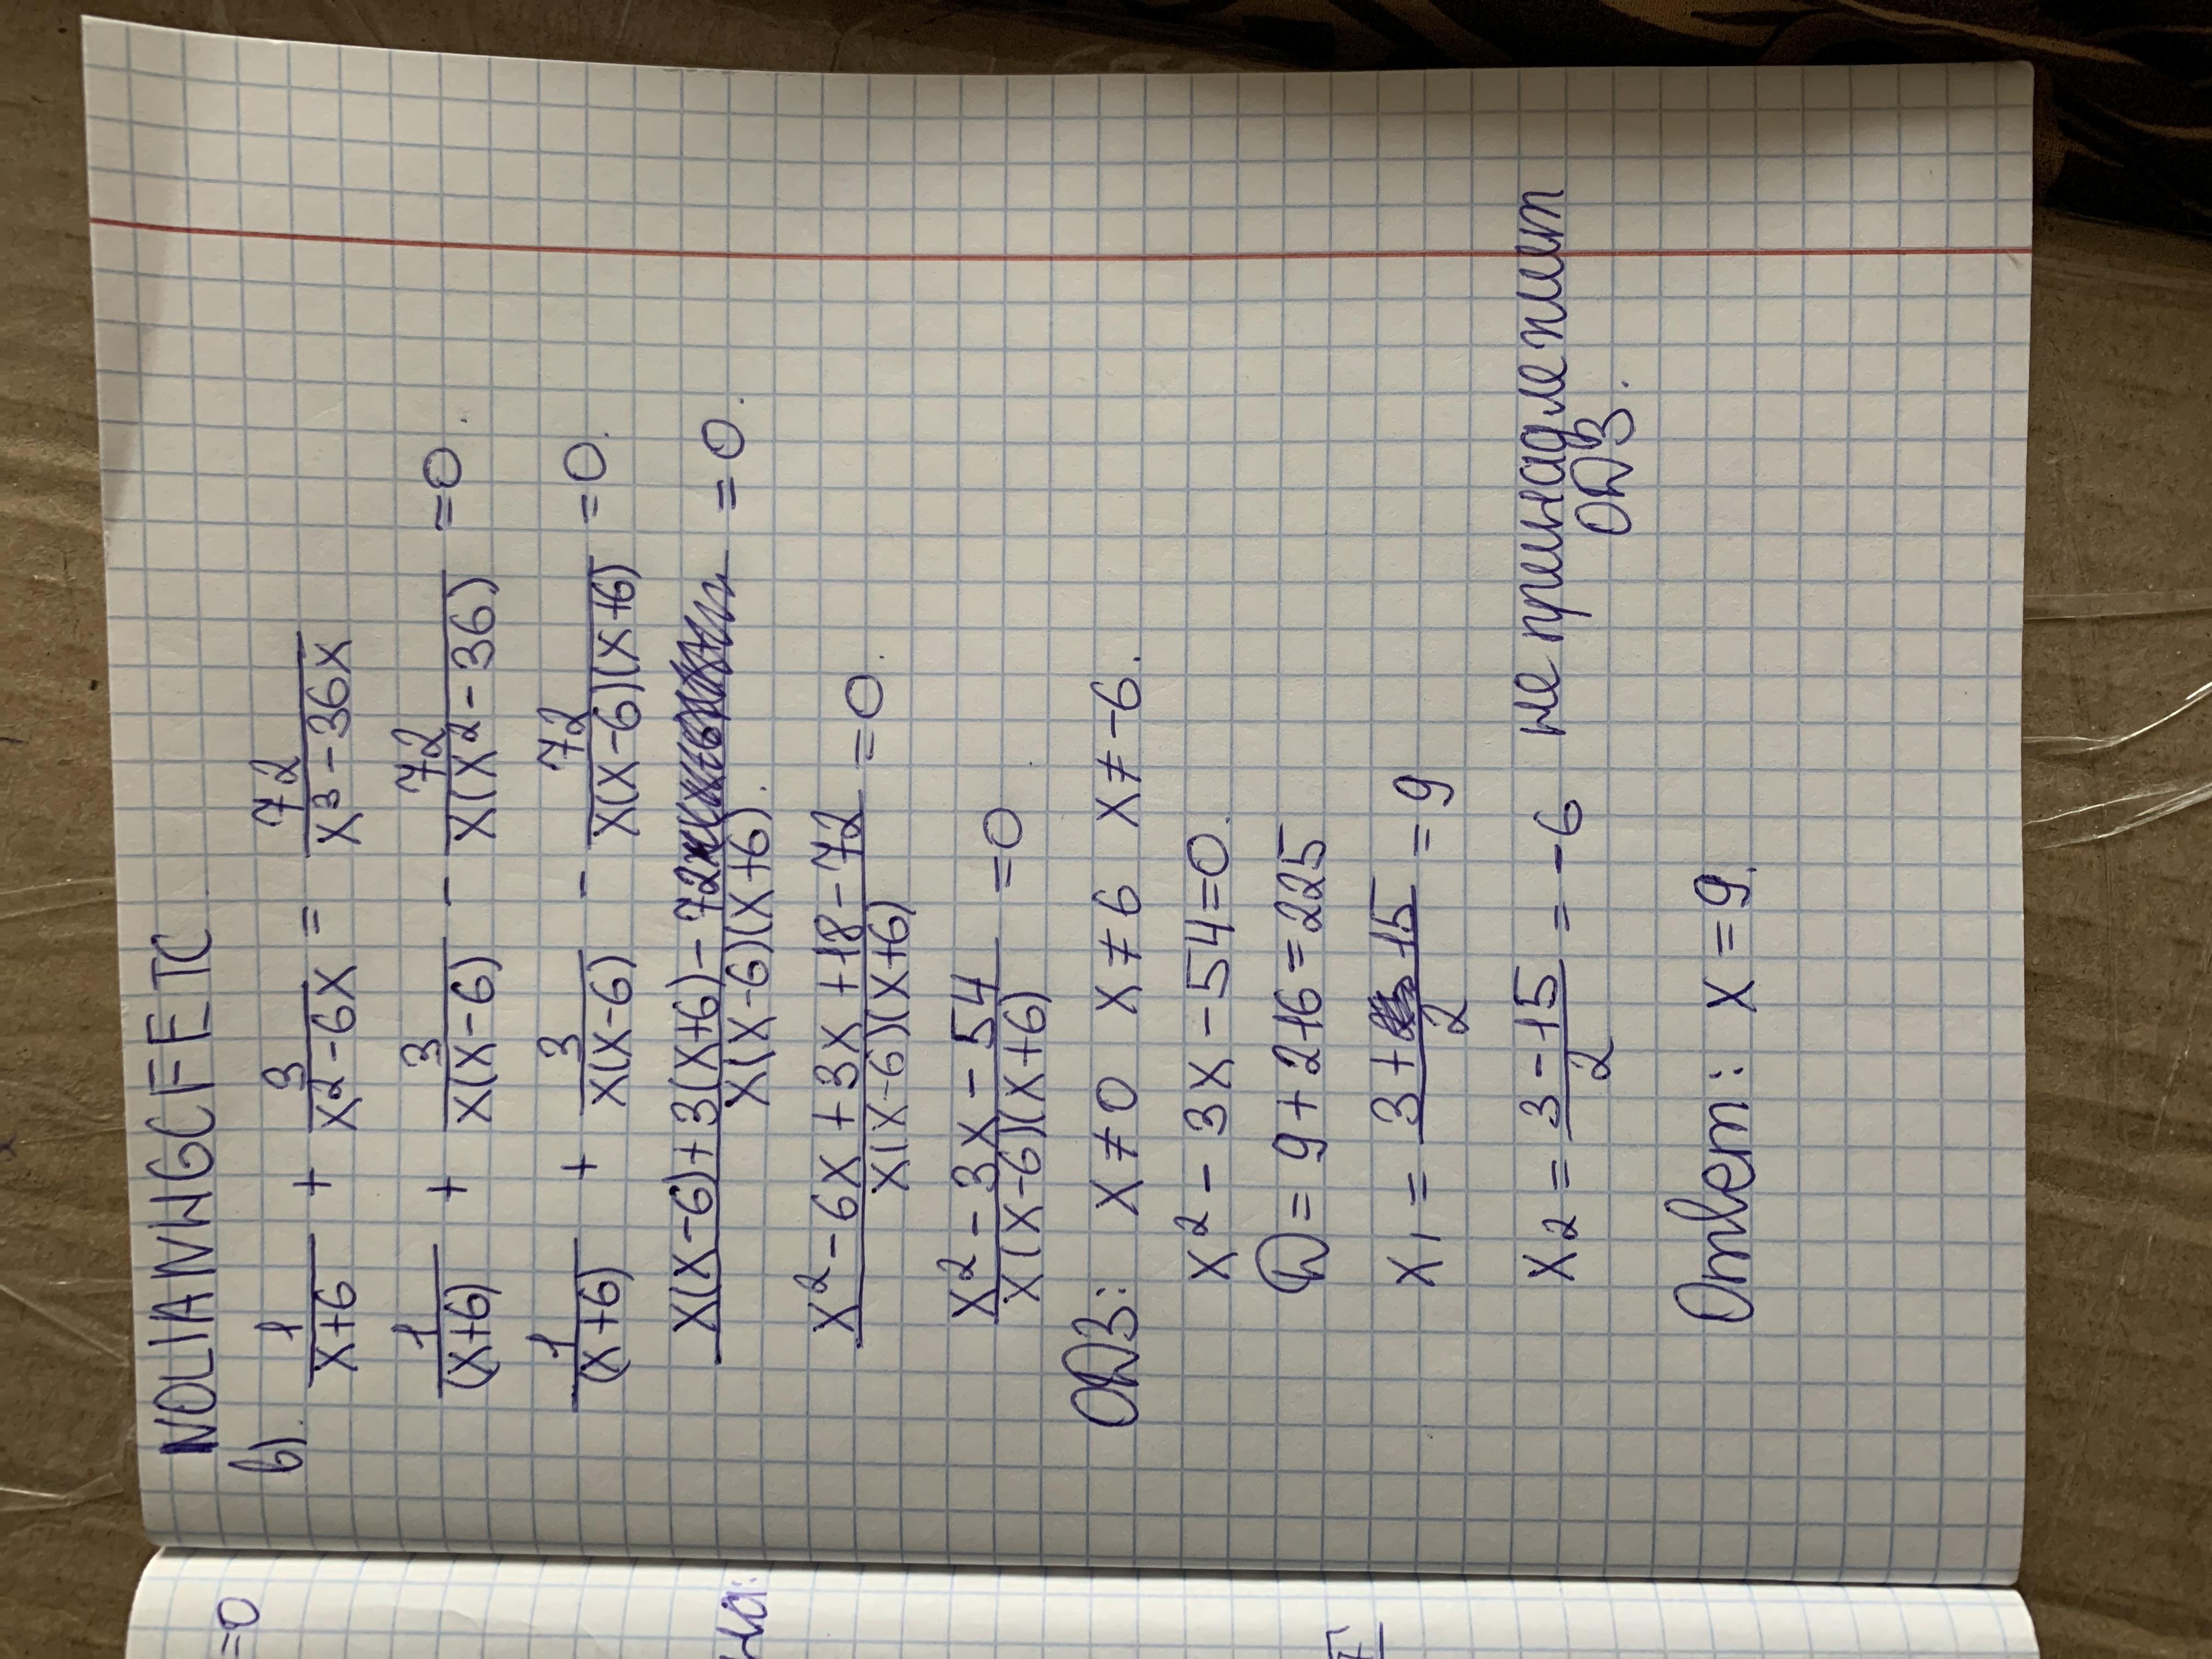 NOLIANWGCFFTC
в).
1/(x+6) + 3/(x²-6x) = 72/(x³-36x)
1/(x+6) + 3/(x(x-6)) - 72/(x(x²-36)) =0.
1/(x+6) + 3/(x(x-6)) - 72/(x(x-6)(x+6)) =0.
(x(x-6)+3(x+6)-72)/(x(x-6)(x+6)). =0.
(x²-6x+3x+18-72)/(x(x-6)(x+6)) =0.
(x²-3x-54)/(x(x-6)(x+6)) =0
ОДЗ: x≠0 x≠6 x≠-6.
x²-3x-54=0.
D=9+216=225
x₁ = (3+15)/2 =9
x₂ = (3-15)/2 = -6 не принадлежит
ОДЗ.
Ответ: x=9.
=0